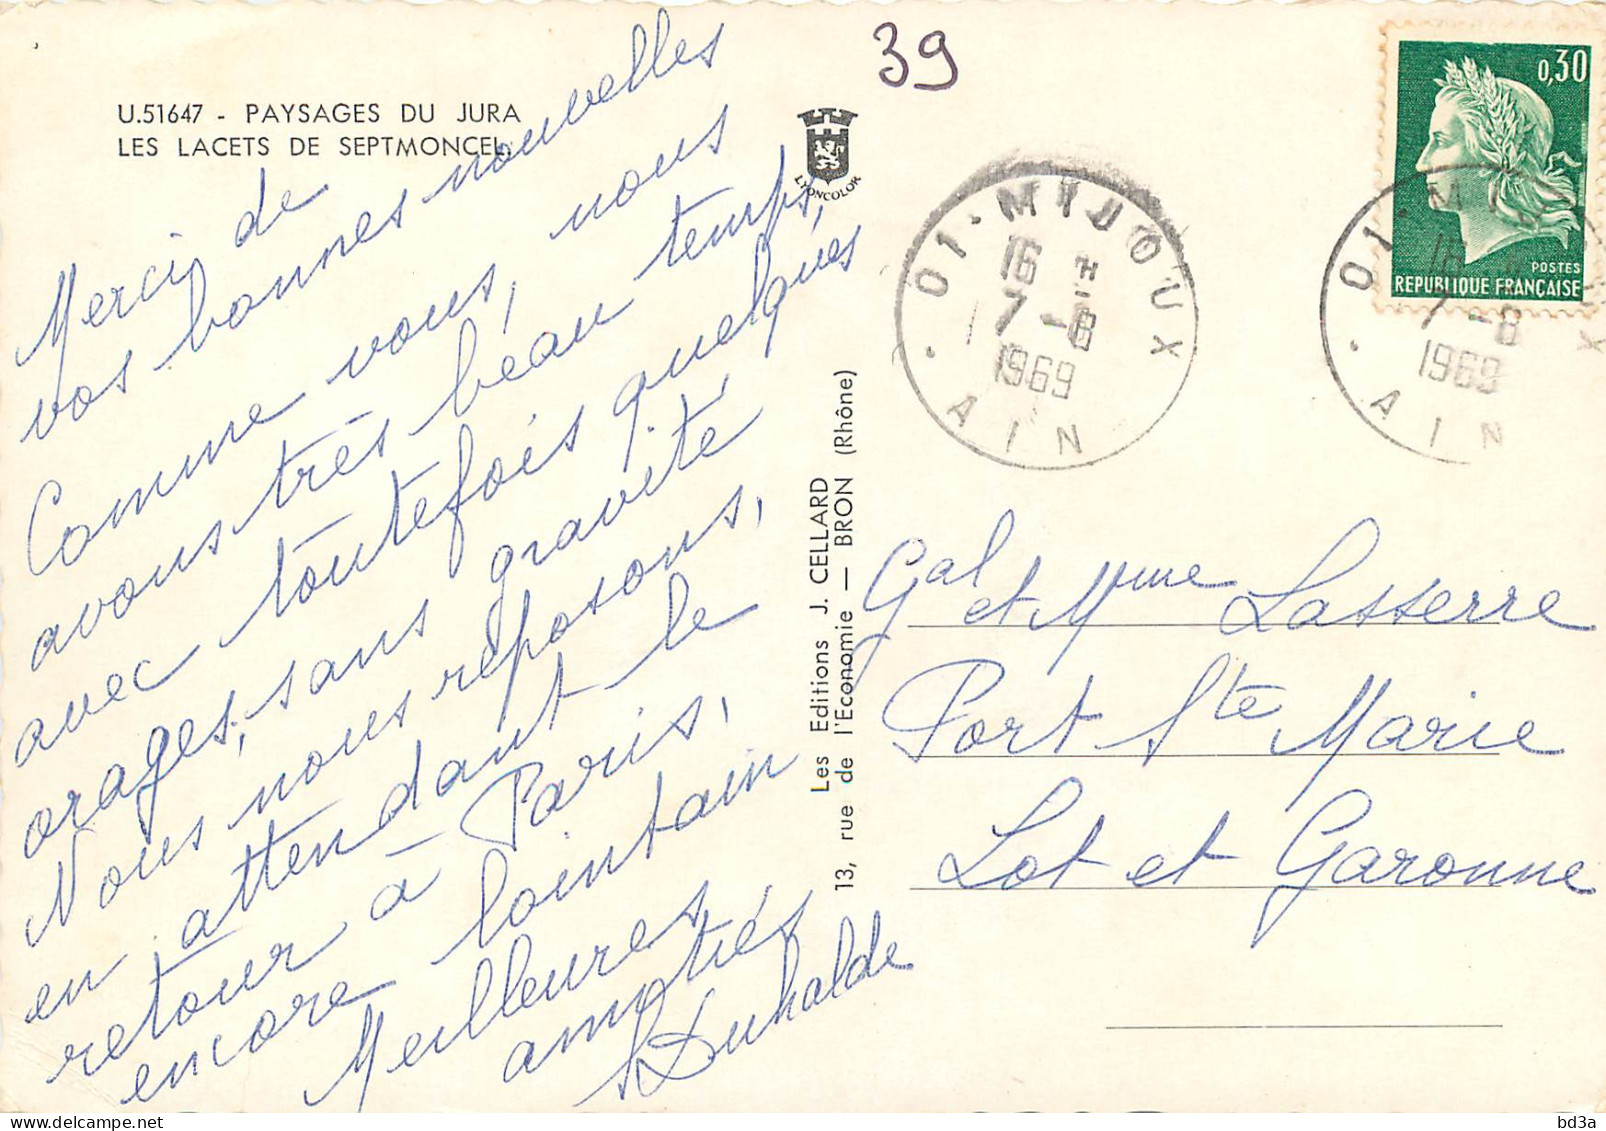 U.51647 - PAYSAGES DU JURA
LES LACETS DE SEPTMONCEL.
Merci de
vos bonnes nouvelles
Comme vous, nous
avons très beau temps,
avec toutefois quelques
orages, sans gravité
Nous nous reposons,
en attendant le
retour à Paris,
encore lointain
Meilleures
amitiés
Duhalde
LYONCOLOR
Les Editions J. CELLARD
13, rue de l'Economie — BRON (Rhône)
39
0,30
POSTES
REPUBLIQUE FRANÇAISE
01 · MIJOUX
16 H
7 - 8
1969
AIN
01 · MIJOUX
16 H
7 - 8
1969
AIN
Gal et Mme Lasserre
Port Ste Marie
Lot et Garonne
bd3a